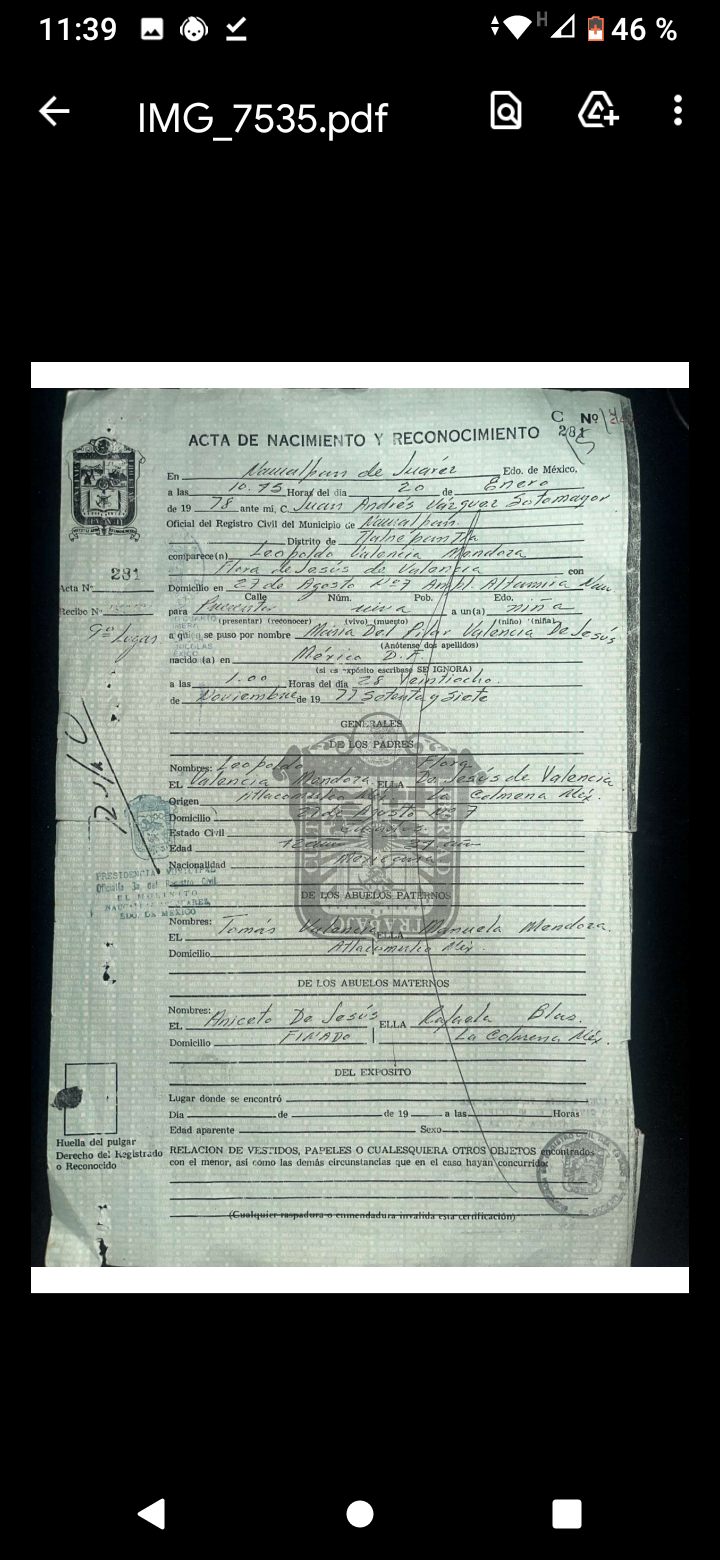 11:39
H
46 %
IMG_7535.pdf
C Nº
281
ACTA DE NACIMIENTO Y RECONOCIMIENTO
En Naucalpan de Juárez Edo. de México,
a las 10.15 Horas del día 20 de Enero
de 19 78 ante mi, C. Juan Andrés Vázquez Sotomayor
Oficial del Registro Civil del Municipio de Naucalpan.
Distrito de Tlalnepantla
comparece(n) Leopoldo Valencia Mendoza
Flora de Jesús de Valencia con
Acta Nº 281
Domicilio en 27 de Agosto Nº 7 Ampl. Altamira Nau
Calle Núm. Pob. Edo.
Recibo Nº
para viva a un(a) niña
(presentar) (reconocer) (vivo) (muerto) (niño) (niña)
9º Lugar
a quien se puso por nombre María Del Pilar Valencia De Jesús
(Anótense dos apellidos)
nacido (a) en México D.F.
(si es expósito escríbase SE IGNORA)
a las 1.00 Horas del día 28 Veintiocho.
de Noviembre de 19 77 Setenta y Siete
GENERALES
DE LOS PADRES
Nombres: Leopoldo Flora
EL Valencia Mendoza ELLA De Jesús de Valencia
Origen Atlacomulco Méx. La Colmena Méx.
Domicilio 27 de Agosto Nº 7
Estado Civil
Edad
Nacionalidad Mexicana
PRESIDENCIA MUNICIPAL
Oficialía 3a. del Registro Civil
EL MOLINITO
NAUCALPAN DE JUAREZ,
EDO. DE MEXICO
TRABAJO
LIBERTAD
DE LOS ABUELOS PATERNOS
Nombres:
EL Tomás Valencia ELLA Manuela Mendoza.
Domicilio Atlacomulco Méx.
DE LOS ABUELOS MATERNOS
Nombres:
EL Aniceto De Jesús ELLA Rafaela Blas.
Domicilio FINADO La Colmena Méx.
DEL EXPOSITO
Lugar donde se encontró
Día de de 19 a las Horas
Edad aparente Sexo
Huella del pulgar
Derecho del Registrado
o Reconocido
RELACION DE VESTIDOS, PAPELES O CUALESQUIERA OTROS OBJETOS encontrados
con el menor, así como las demás circunstancias que en el caso hayan concurrido:
(Cualquier raspadura o enmendadura invalida esta certificación)